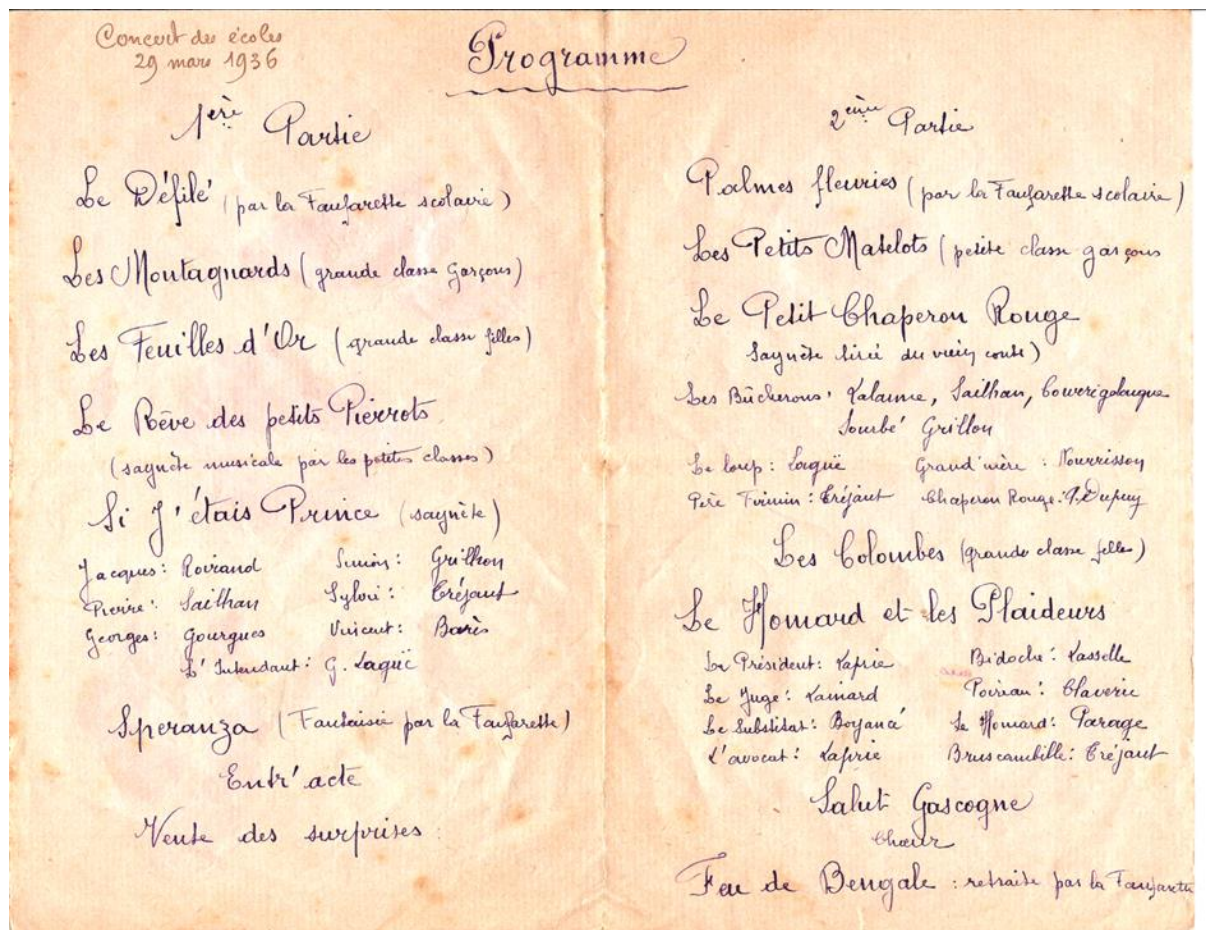 Concert des écoles
29 mars 1936
Programme
1ère Partie
Le Défilé (par la Fanfarette scolaire)
Les Montagnards (grande classe Garçons)
Les Feuilles d'Or (grande classe filles)
Le Rêve des petits Pierrots
(saynète musicale par les petites classes)
Si J'étais Prince (saynète)
Jacques: Roirand Simon: Grilhon
Pierre: Sailhan Sylvio: Tréjaut
Georges: Gourgues Vincent: Baris
L'Intendant: G. Lagüe
Speranza (Fantaisie par la Fanfarette)
Entr'acte
Vente des surprises
2ème Partie
Palmes fleuries (par la Fanfarette scolaire)
Les Petits Matelots (petite classe garçons
Le Petit Chaperon Rouge
Saynète tiré du vieux conte)
Les Bûcherons: Lalanne, Sailhan,
Grillon
Le loup: Lagüe Grand'mère: Nourrisson
Père Firmin: Tréjaut Chaperon Rouge: P. Dupuy
Les Colombes (grande classe filles)
Le Homard et les Plaideurs
Le Président: Laprie Bidoche: Lasselle
Le Juge: Lainard Poireau: Claverie
Le Substitut: Boyancé Le Homard: Parage
L'avocat: Laprie Bruscambille: Tréjaut
Salut Gascogne
Chœur
Feu de Bengale: retraite par la Fanfarette